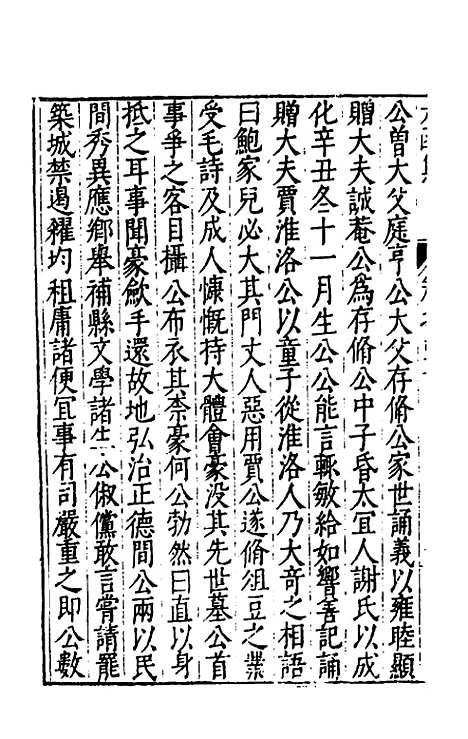 公曽大父庭亨公大父存脩公家世誦義以雍睦顯
贈大夫誠菴公爲存脩公中子昏太宜人謝氏以成
化辛丑冬十一月生公公能言輙敏給如響善記誦
贈大夫賈淮洛公以童子從淮洛人乃大奇之相語
曰鮑家兒必大其門丈人惡用賈公遂脩俎豆之業
受毛詩及成人慷慨持大體會豪没其先世墓公首
事爭之客目攝公布衣其柰豪何公勃然曰直以身
抵之耳事聞豪歛手還故地弘治正德間公兩以民
間秀異應鄉舉補縣文學諸生公俶儻敢言嘗請罷
築城禁遏糴均租庸諸便宜事有司嚴重之即公數